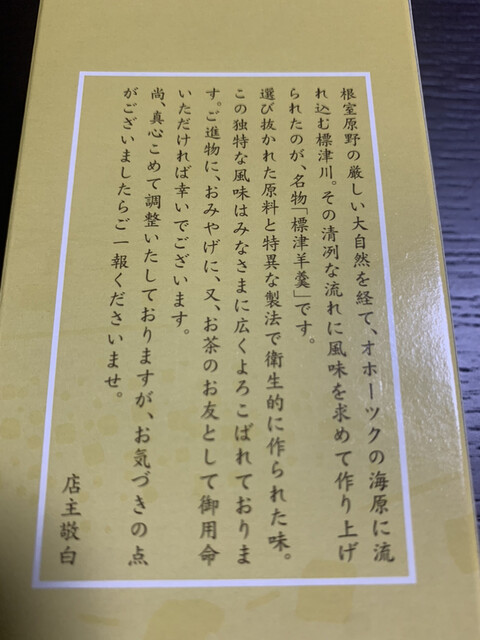 根室原野の厳しい大自然を経て、オホーツクの海原に流
れ込む標津川。その清冽な流れに風味を求めて作り上げ
られたのが、名物「標津羊羹」です。
選び抜かれた原料と特異な製法で衛生的に作られた味。
この独特な風味はみなさまに広くよろこばれておりま
す。ご進物に、おみやげに、又、お茶のお友として御用命
いただければ幸いでございます。
尚、真心こめて調整いたしておりますが、お気づきの点
がございましたらご一報くださいませ。
店主敬白